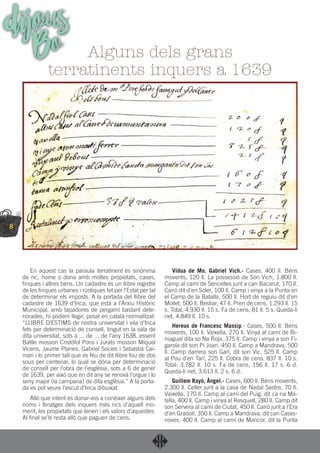 dijous
Bo
Alguns dels grans
terratinents inquers a 1639
8
En aquest cas la paraula terratinent és sinònima
de ric, home o dona amb moltes propietats, cases,
finques i altres béns. Un cadastre és un llibre registre
de les finques urbanes i rústiques fet per l'Estat per tal
de determinar els imposts. A la portada del llibre del
cadastre de 1639 d'Inca, que està a l'Arxiu Històric
Municipal, amb tapadores de pergamí bastant dete-
riorades, hi podem llegir, posat en català normalitzat:
"LLIBRE D'ESTIMS de nostra universitat i vila d'Inca
fets per determinació de consell, tingut en la sala de
dita universitat, sots a ... de ... de l'any 1638, essent
Batlle mossèn Cristòfol Pons i Jurats mossèn Miquel
Vicens, Jaume Planes, Gabriel Socies i Sebastià Cai-
mari i lo primer tall que es féu de dit llibre fou de dos
sous per centenar, lo qual se dóna per determinació
de consell per l'obra de l'església, sots a 6 de gener
de 1639; per això que en dit any se renovà l'orgue i lo
seny major (la campana) de dita església." A la porta-
da es pot veure l'escut d'Inca dibuixat.
Allò que intent és donar-vos a conèixer alguns dels
noms i llinatges dels inquers més rics d'aquell mo-
ment, les propietats que tenen i els valors d'aquestes.
Al final se'ls resta allò que paguen de cens.
Vídua de Mo. Gabriel Vich.- Cases, 400 ll. Béns
movents, 120 ll. La possessió de Son Vich, 1.800 ll.
Camp al camí de Sencelles junt a can Bacarat, 170 ll.
Cairó dit d'en Soler, 100 ll. Camp i vinya a la Punta en
el Camp de la Batalla, 500 ll. Hort de reguiu dit d'en
Mollet, 500 ll. Bestiar, 47 ll. Pren de cens, 1.293 ll. 15
s. Total, 4.930 ll. 15 s. Fa de cens, 81 ll. 5 s. Queda-li
net, 4.849 ll. 10 s.
Hereus de Francesc Massip.- Cases, 500 ll. Béns
movents, 100 ll. Vaixella, 270 ll. Vinya al camí de Bi-
niagual dita so Na Roja, 375 ll. Camp i vinya a son Fi-
garola dit son Pi Joan, 450 ll. Camp a Mandrava, 500
ll. Camp darrera son Gari, dit son Vic, 525 ll. Camp
al Pou d'en Tarí, 225 ll. Cobra de cens, 837 ll. 10 s.
Total: 3.782 ll. 10 s. Fa de cens, 156 ll. 17 s. 6 d.
Queda-li net, 3.613 ll. 2 s. 6 d.
Guillem Rayó, Àngel.- Cases, 600 ll. Béns movents,
2.300 ll. Celler junt a la casa de Nadal Sastre, 70 ll.
Vaixella, 170 ll. Camp al camí del Puig, dit ca na Ma-
tella, 400 ll. Camp i vinya al Resquell, 280 ll. Camp dit
son Servera al camí de Ciutat, 450 ll. Cairó junt a l'Era
d'en Gradolí, 350 ll. Camp a Mandrava, dit can Cases-
noves, 400 ll. Camp al camí de Mancor, dit la Punta